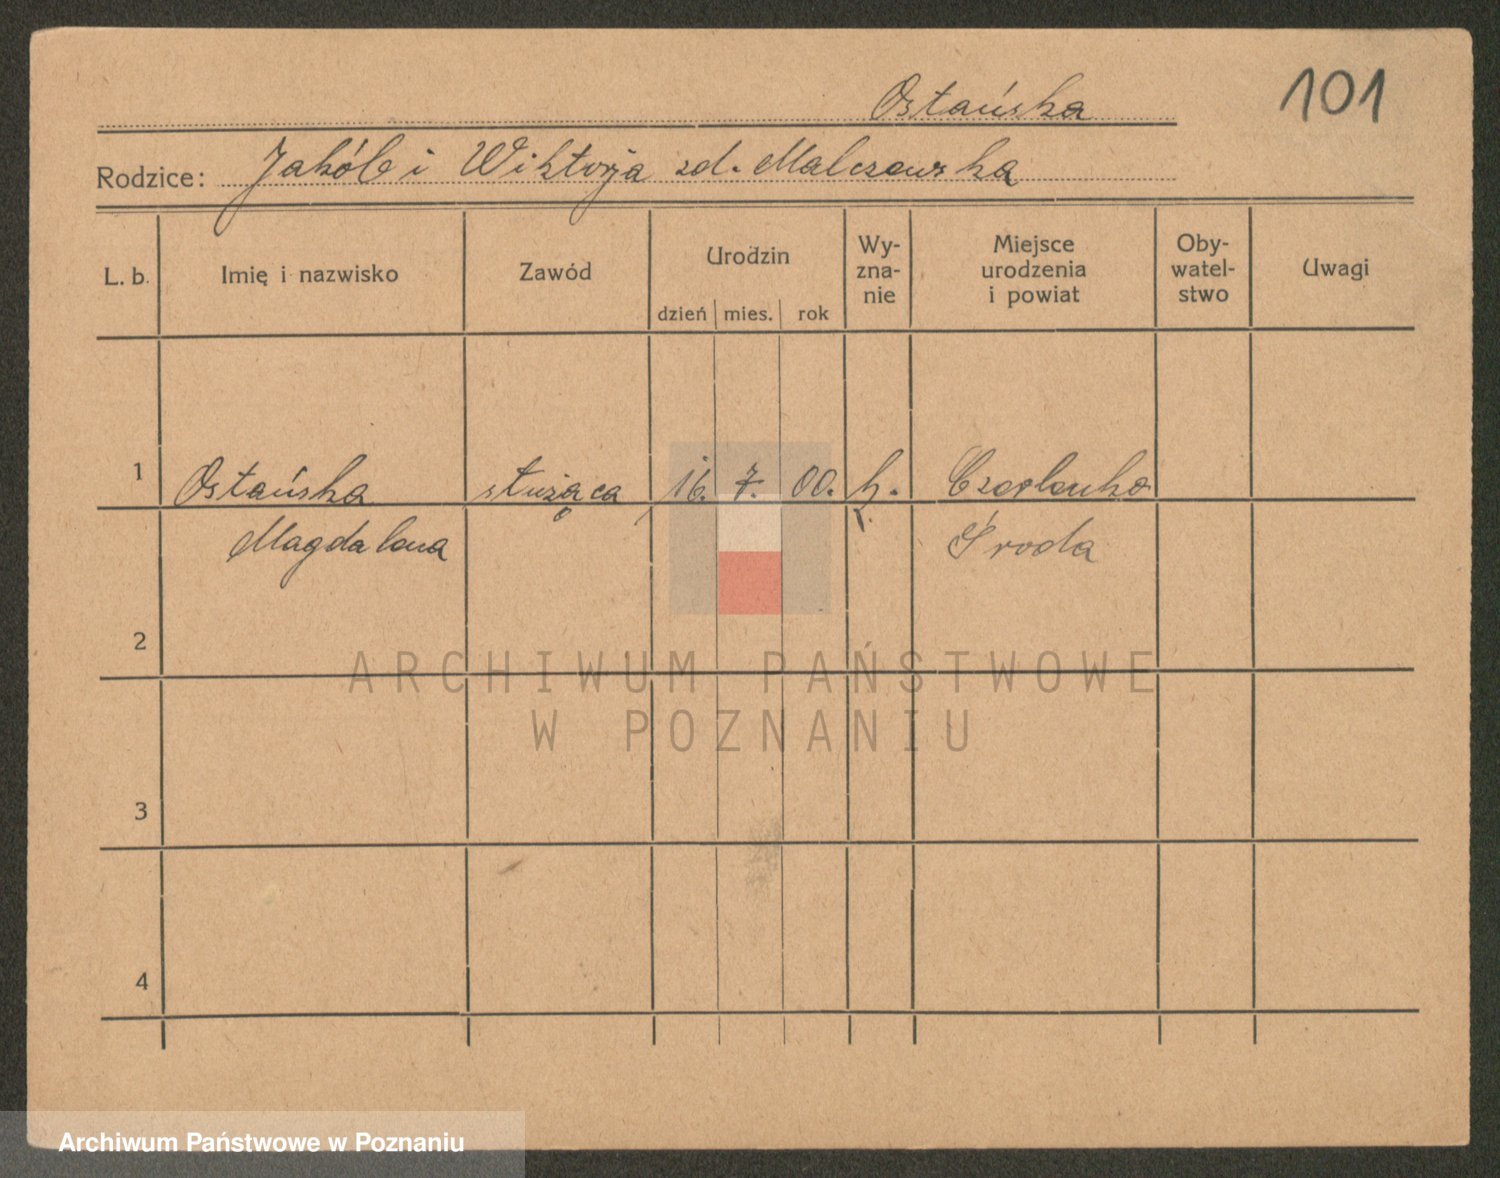 Ostańska
101
Rodzice: Jakób i Wiktorja zd. Malczewska
L. b.
Imię i nazwisko
Zawód
Urodzin
dzień
mies.
rok
Wy-
zna-
nie
Miejsce
urodzenia
i powiat
Oby-
watel-
stwo
Uwagi
1
Ostańska
służąca
16. 7. 00.
k.
Czerlenko
Magdalena
Środa
2
ARCHIWUM PAŃSTWOWE
W POZNANIU
3
4
Archiwum Państwowe w Poznaniu